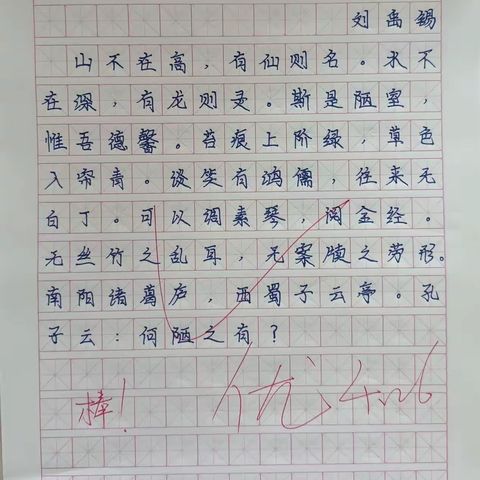 刘禹锡
山不在高，有仙则名。水不
在深，有龙则灵。斯是陋室，
惟吾德馨。苔痕上阶绿，草色
入帘青。谈笑有鸿儒，往来无
白丁。可以调素琴，阅金经。
无丝竹之乱耳，无案牍之劳形。
南阳诸葛庐，西蜀子云亭。孔
子云：何陋之有？
棒！
优 4.26